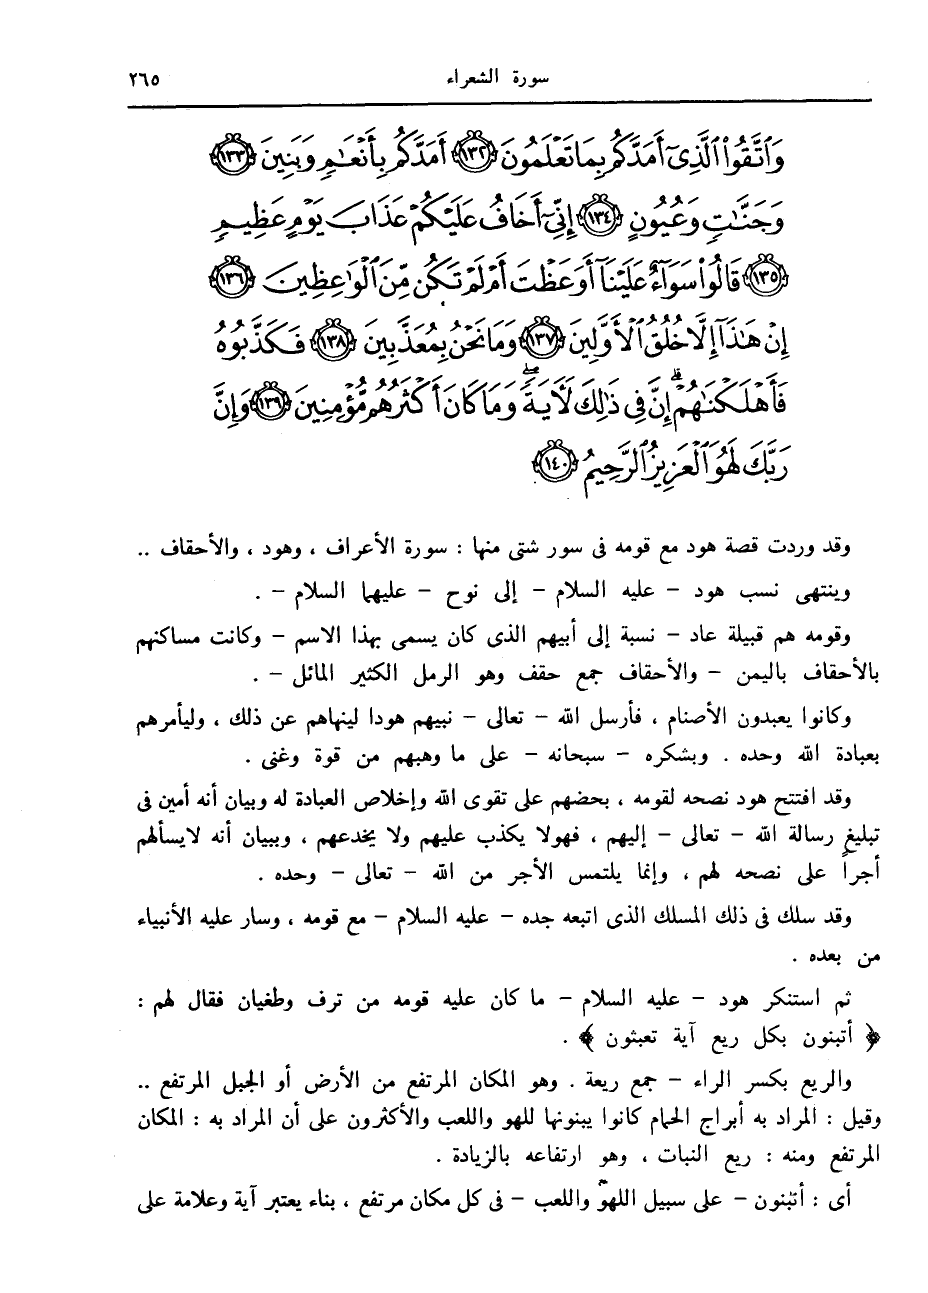 سورة الشعراء ٢٦٥
وَٱتَّقُوا۟ ٱلَّذِىٓ أَمَدَّكُم بِمَا تَعْلَمُونَ ١٣٢ أَمَدَّكُم بِأَنْعَٰمٍ وَبَنِينَ ١٣٣
وَجَنَّٰتٍ وَعُيُونٍ ١٣٤ إِنِّىٓ أَخَافُ عَلَيْكُمْ عَذَابَ يَوْمٍ عَظِيمٍ
١٣٥ قَالُوا۟ سَوَآءٌ عَلَيْنَآ أَوَعَظْتَ أَمْ لَمْ تَكُن مِّنَ ٱلْوَٰعِظِينَ ١٣٦
إِنْ هَٰذَآ إِلَّا خُلُقُ ٱلْأَوَّلِينَ ١٣٧ وَمَا نَحْنُ بِمُعَذَّبِينَ ١٣٨ فَكَذَّبُوهُ
فَأَهْلَكْنَٰهُمْ ۗ إِنَّ فِى ذَٰلِكَ لَءَايَةً ۖ وَمَا كَانَ أَكْثَرُهُم مُّؤْمِنِينَ ١٣٩ وَإِنَّ
رَبَّكَ لَهُوَ ٱلْعَزِيزُ ٱلرَّحِيمُ ١٤٠
وقد وردت قصة هود مع قومه فى سور شتى منها : سورة الأعراف ، وهود ، والأحقاف ..
وينتهى نسب هود – عليه السلام – إلى نوح – عليهما السلام – .
وقومه هم قبيلة عاد – نسبة إلى أبيهم الذى كان يسمى بهذا الاسم – وكانت مساكنهم
بالأحقاف باليمن – والأحقاف جمع حقف وهو الرمل الكثير المائل – .
وكانوا يعبدون الأصنام ، فأرسل الله – تعالى – نبيهم هودا لينهاهم عن ذلك ، وليأمرهم
بعبادة الله وحده . وبشكره – سبحانه – على ما وهبهم من قوة وغنى .
وقد افتتح هود نصحه لقومه ، بحضهم على تقوى الله وإخلاص العبادة له وبيان أنه أمين فى
تبليغ رسالة الله – تعالى – إليهم ، فهولا يكذب عليهم ولا يخدعهم ، وببيان أنه لايسألهم
أجراً على نصحه لهم ، وإنما يلتمس الأجر من الله – تعالى – وحده .
وقد سلك فى ذلك المسلك الذى اتبعه جده – عليه السلام – مع قومه ، وسار عليه الأنبياء
من بعده .
ثم استنكر هود – عليه السلام – ما كان عليه قومه من ترف وطغيان فقال لهم :
﴿ أتبنون بكل ريع آية تعبثون ﴾ .
والريع بكسر الراء – جمع ريعة . وهو المكان المرتفع من الأرض أو الجبل المرتفع ..
وقيل : المراد به أبراج الحمام كانوا يبنونها للهو واللعب والأكثرون على أن المراد به : المكان
المرتفع ومنه : ريع النبات ، وهو ارتفاعه بالزيادة .
أى : أتبنون – على سبيل اللهو واللعب – فى كل مكان مرتفع ، بناء يعتبر آية وعلامة على